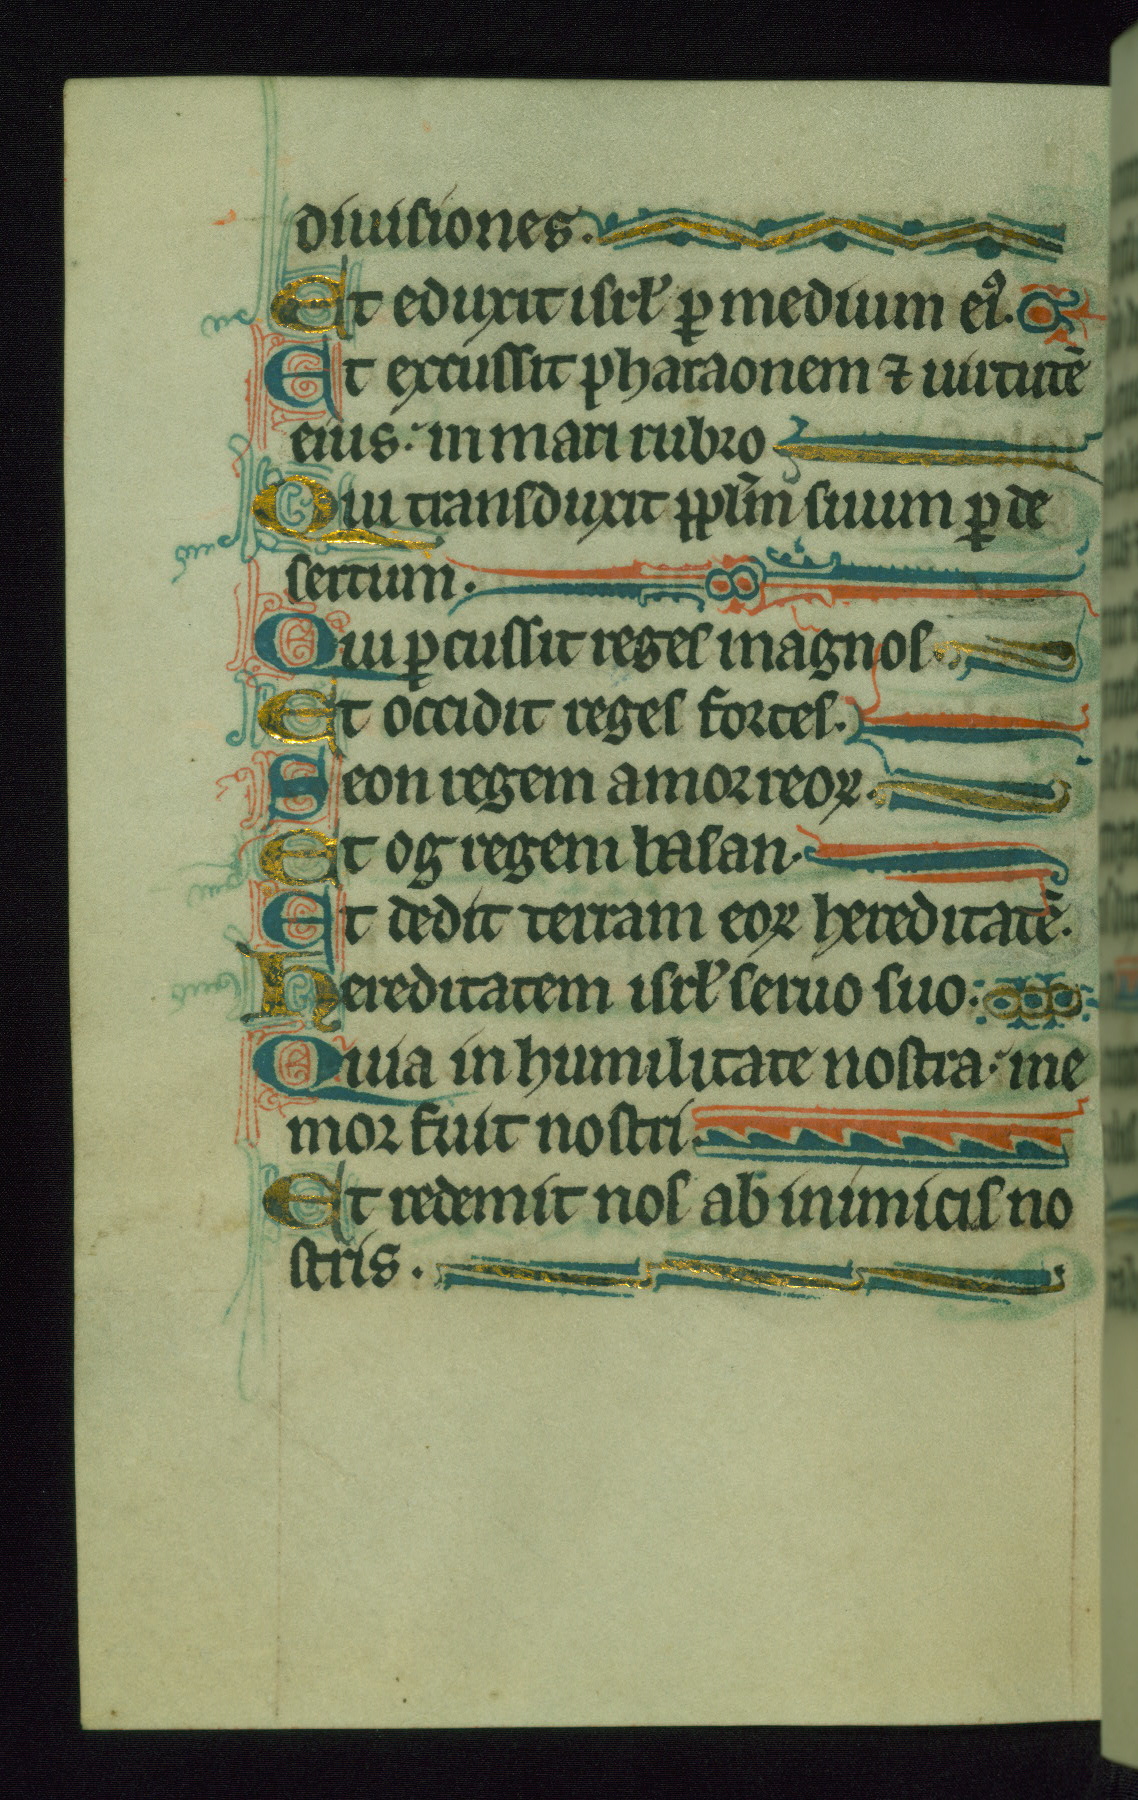 diuisiones.
Et eduxit isrł ꝑ medium eiꝰ.
Et excussit pharaonem ⁊ uirtutē
eius. in mari rubro
Qui transduxit pplm̄ suum ꝑ de
sertum.
Qui ꝑcussit reges magnos.
Et occidit reges fortes.
Seon regem amorreoꝝ.
Et og regem basan.
Et dedit terram eoꝝ hereditatē.
Hereditatem isrł seruo suo.
Quia in humilitate nostra. me
mor fuit nostri.
Et redemit nos ab inimicis no
stris.